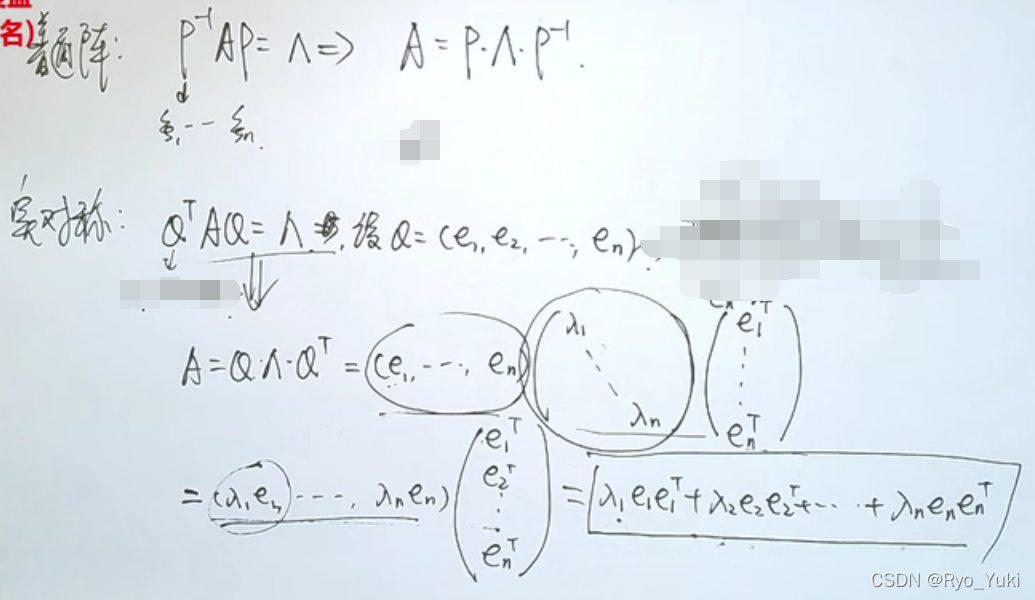 名)
普通阵: P⁻¹AP = Λ ⇒ A = P·Λ·P⁻¹.
ξ₁ ··· ξₙ.
实对称: QᵀAQ = Λ, 设 Q = (e₁, e₂, ···, eₙ).
A = Q·Λ·Qᵀ = (e₁, ···, eₙ) (λ₁ ⋱ λₙ) (e₁ᵀ ⋮ eₙᵀ)
= (λ₁e₁, ···, λₙeₙ) (e₁ᵀ e₂ᵀ ⋮ eₙᵀ) = λ₁e₁e₁ᵀ + λ₂e₂e₂ᵀ + ··· + λₙeₙeₙᵀ
CSDN @Ryo_Yuki